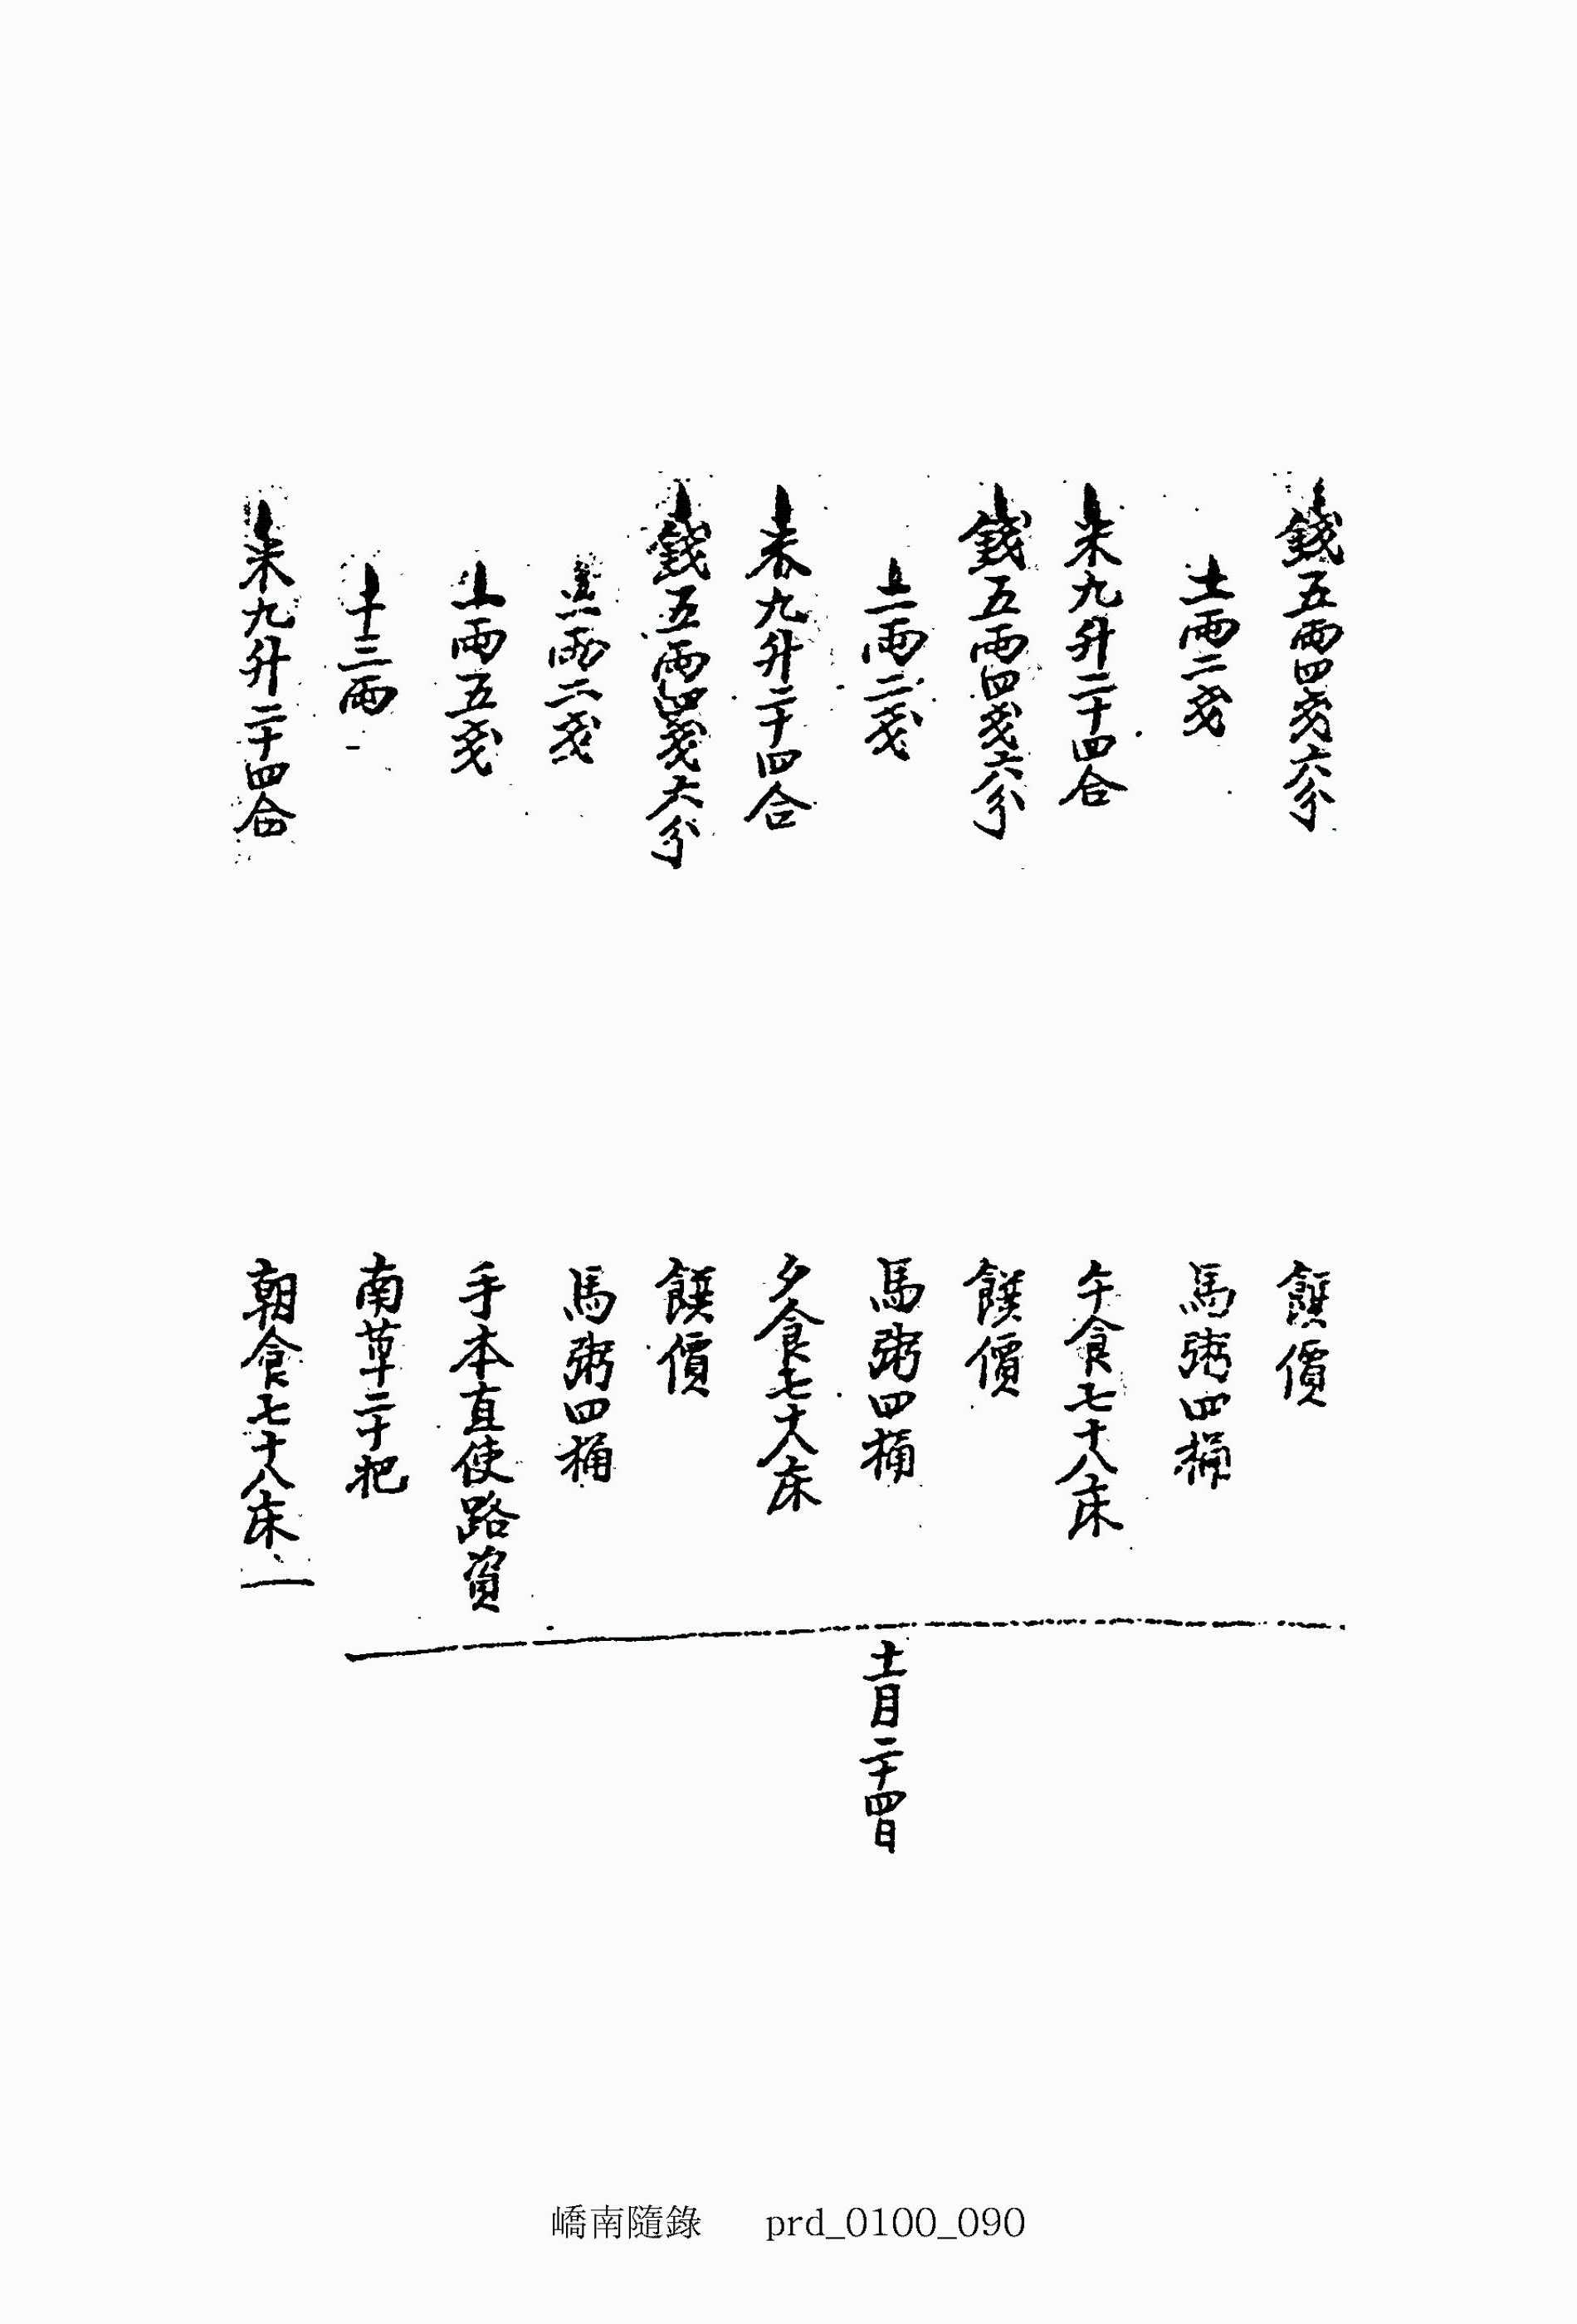 錢五兩四戔六分 饌價
二兩二戔 馬粥四桶
米九升二十四合 午食七十八床
錢五兩四戔六分 饌價
二兩二戔 馬粥四桶
米九升二十四合 夕食七十八床
錢五兩四戔六分 饌價
二兩二戔 馬粥四桶
一兩五戔 手本直使路資
十三兩 南草二十把
十一月二十四日
米九升二十四合 朝食七十八床
嶠南隨錄 prd_0100_090